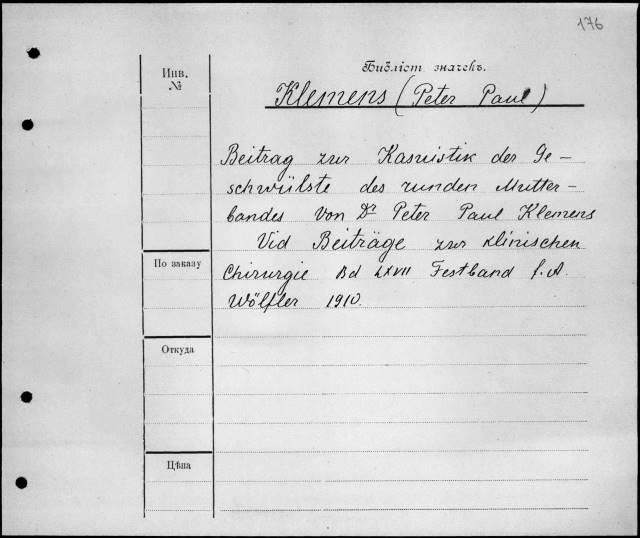 176
Библіот значекъ.
Инв.
№
Klemens (Peter Paul)
Beitrag zur Kasuistik der Ge-
schwülste des runden Mutter-
bandes von Dr Peter Paul Klemens
Vid Beiträge zur klinischen
Chirurgie Bd LXVII Festband f. A.
Wölfler 1910.
По заказу
Откуда
Цѣна